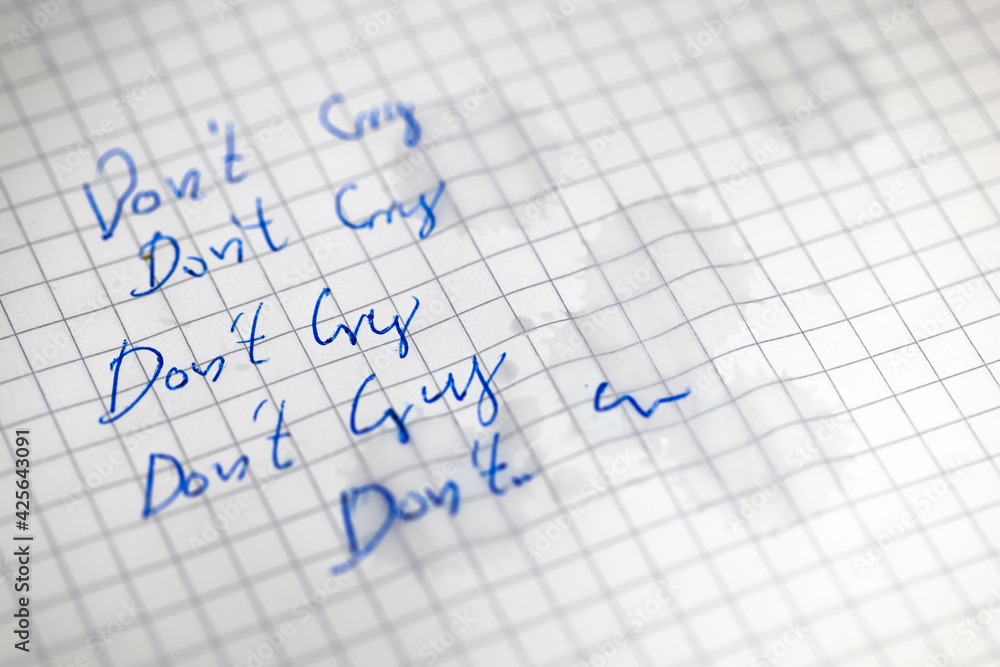 Don't Cry
Don't Cry
Don't Cry
Don't Cry
Don't..
Adobe Stock | #425643091